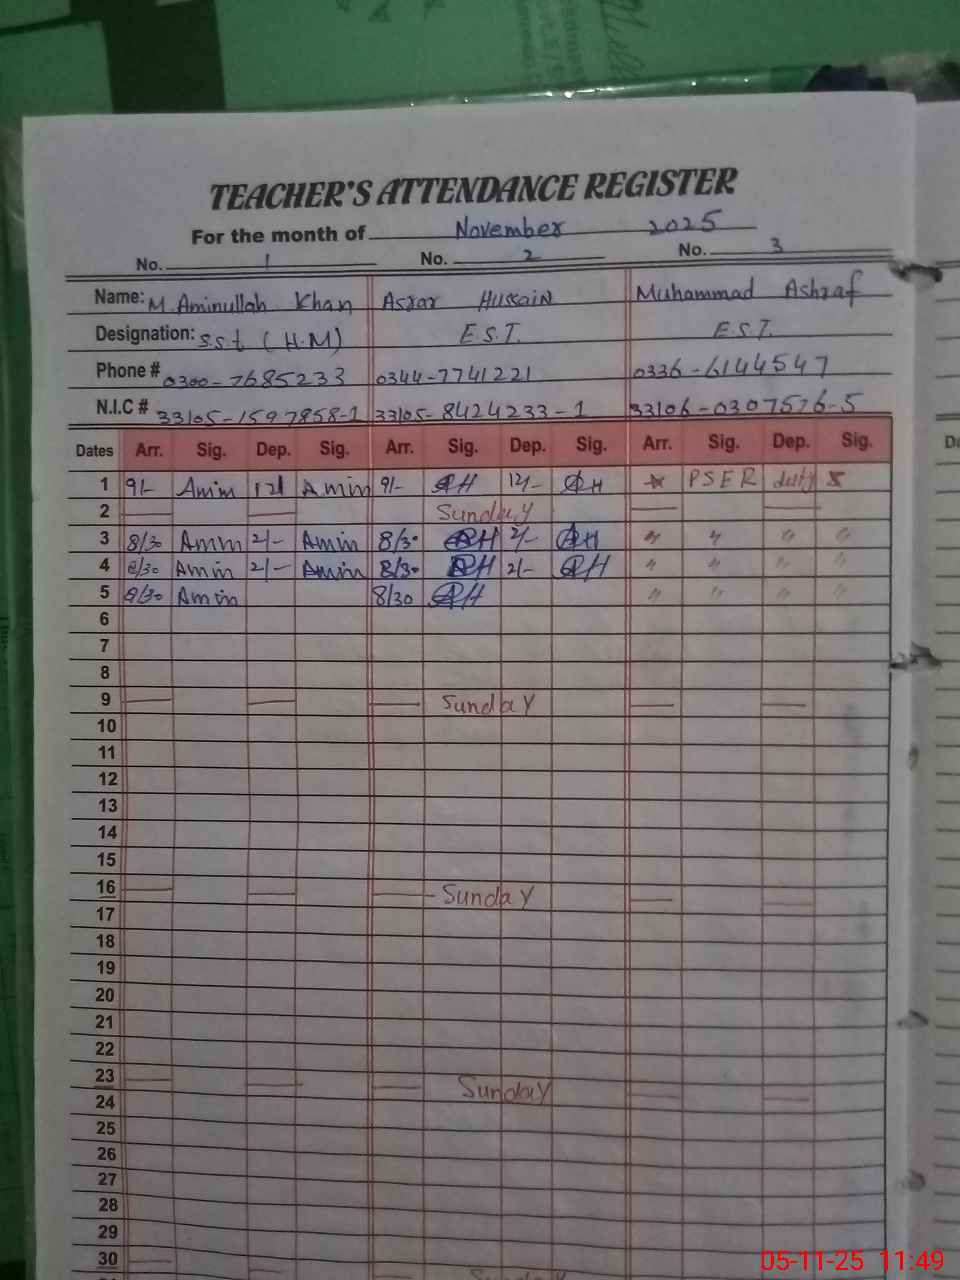 TEACHER'S ATTENDANCE REGISTER
For the month of November 2025
No. 1 No. 2 No. 3
Name: M. Aminullah Khan Asrar Hussain Muhammad Ashraf
Designation: S.S.t (H.M) E.S.T. E.S.T.
Phone # 0300-7685233 0344-7741221 0336-6144547
N.I.C # 33105-1597858-1 33105-8424233-1 33106-0307576-5
Dates Arr. Sig. Dep. Sig. Arr. Sig. Dep. Sig. Arr. Sig. Dep. Sig.
1 9/- Amin 12/ Amin 9/- 12/- PSER duty
2 Sunday
3 8/30 Amin 2/- Amin 8/30 2/- " " " "
4 8/30 Amin 2/- Amin 8/30 2/- " " " "
5 8/30 Amin 8/30 " " " "
6
7
8
9 Sunday
10
11
12
13
14
15
16 Sunday
17
18
19
20
21
22
23 Sunday
24
25
26
27
28
29
30 Sunday
05-11-25 11:49